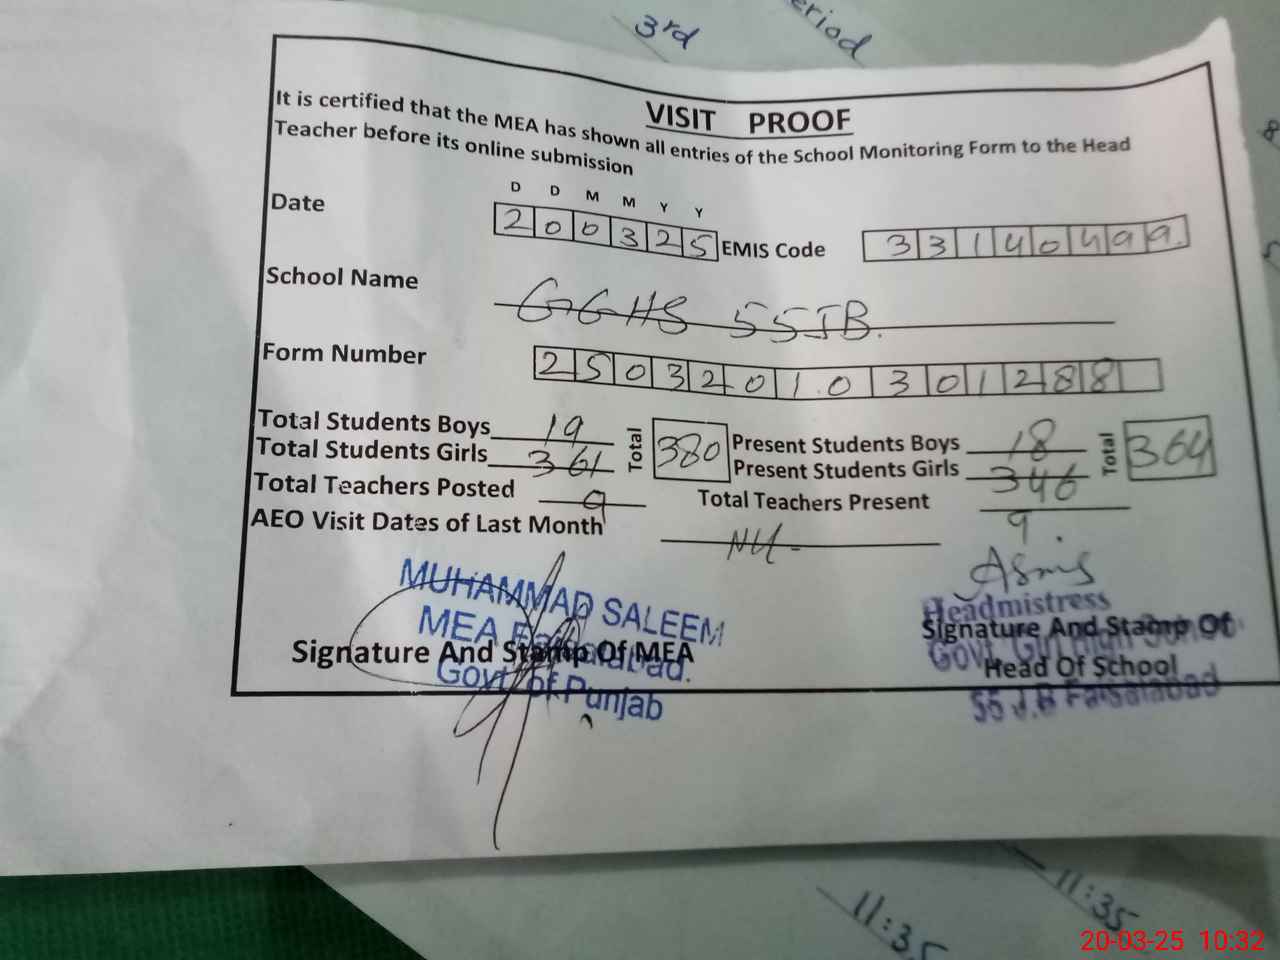 3rd
eriod
VISIT PROOF
It is certified that the MEA has shown all entries of the School Monitoring Form to the Head
Teacher before its online submission
D D M M Y Y
Date 200325 EMIS Code 33140499
School Name GGHS 55JB.
Form Number 25032010301288
Total Students Boys 19 Total 380 Present Students Boys 18 Total 364
Total Students Girls 361 Present Students Girls 346
Total Teachers Posted 9 Total Teachers Present 9.
AEO Visit Dates of Last Month Nil
MUHAMMAD SALEEM
MEA Faisalabad.
Govt. of Punjab
Signature And Stamp Of MEA
Headmistress
Govt. Girl High
55 J.B Faisalabad
Signature And Stamp Of
Head Of School
11:35
11:35
20-03-25 10:32